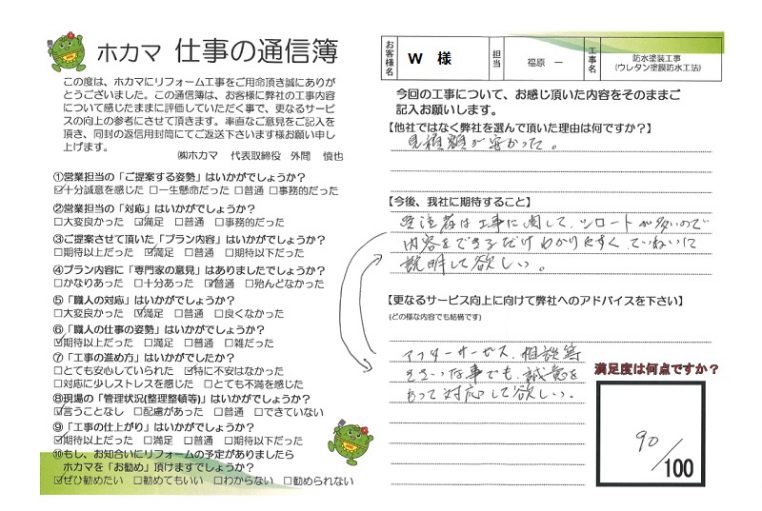 ホカマ 仕事の通信簿
この度は、ホカマにリフォーム工事をご用命頂き誠にありが
とうございました。この通信簿は、お客様に弊社の工事内容
について感じたままに評価していただく事で、更なるサービ
スの向上の参考にさせて頂きます。率直なご意見をご記入を
頂き、同封の返信用封筒にてご返送下さいます様お願い申し
上げます。
㈱ホカマ 代表取締役 外間 慎也
①営業担当の「ご提案する姿勢」はいかがでしょうか?
☑十分誠意を感じた □一生懸命だった □普通 □事務的だった
②営業担当の「対応」はいかがでしょうか?
□大変良かった ☑満足 □普通 □事務的だった
③ご提案させて頂いた「プラン内容」はいかがでしょうか?
□期待以上だった ☑満足 □普通 □期待以下だった
④プラン内容に「専門家の意見」はありましたでしょうか?
□かなりあった □十分あった ☑普通 □殆んどなかった
⑤「職人の対応」はいかがでしょうか?
□大変良かった ☑満足 □普通 □良くなかった
⑥「職人の仕事の姿勢」はいかがでしょうか?
☑期待以上だった □満足 □普通 □雑だった
⑦「工事の進め方」はいかがでしたか?
□とても安心していられた ☑特に不安はなかった
□対応に少しストレスを感じた □とても不満を感じた
⑧現場の「管理状況(整理整頓等)」はいかがでしょうか?
☑言うことなし □配慮があった □普通 □できていない
⑨「工事の仕上がり」はいかがでしょうか?
☑期待以上だった □満足 □普通 □期待以下だった
⑩もし、お知合いにリフォームの予定がありましたら
ホカマを「お勧め」頂けますでしょうか?
☑ぜひ勧めたい □勧めてもいい □わからない □勧められない
お客様名 W 様 担当 福原 一 工事名 防水塗装工事
(ウレタン塗膜防水工法)
今回の工事について、お感じ頂いた内容をそのままご
記入お願いします。
【他社ではなく弊社を選んで頂いた理由は何ですか?】
見積額が安かった。
【今後、我社に期待すること】
発注者は工事に関して、シロートが多いので
内容をできるだけわかりやすく、ていねいに
説明して欲しい。
【更なるサービス向上に向けて弊社へのアドバイスを下さい】
(どの様な内容でも結構です)
アフターサービス、相談等
ささいな事でも、誠意を
もって対応して欲しい。
満足度は何点ですか?
90/100